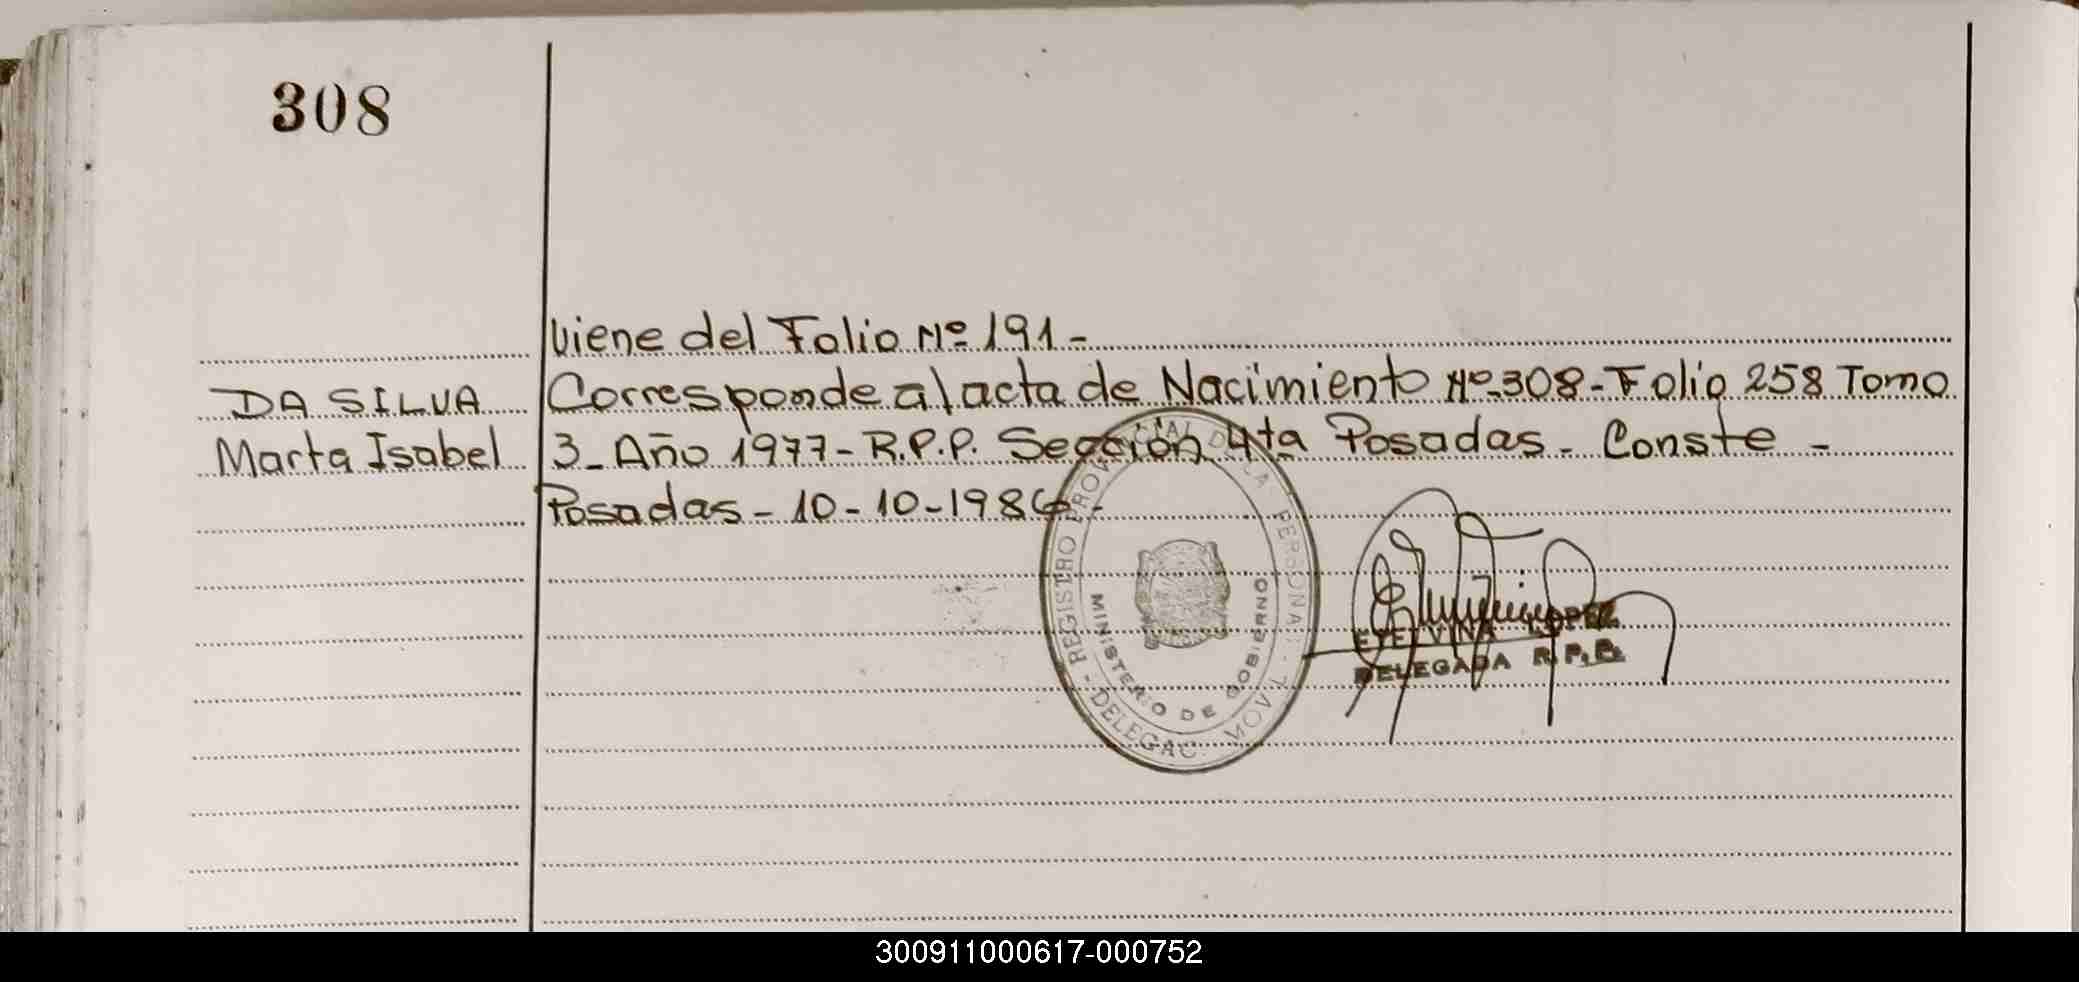 308
Viene del Folio Nº 191-
DA SILVA
Marta Isabel
Corresponde al acta de Nacimiento Nº 308-Folio 258 Tomo
3- Año 1977- R.P.P. Sección 4ta Posadas- Conste-
Posadas- 10-10-1986-
REGISTRO PROVINCIAL DE LA PERSONA
- DELEGAC. MOVIL -
MINISTERIO DE GOBIERNO
ETELVINA LOPEZ
DELEGADA R.P.P.
300911000617-000752